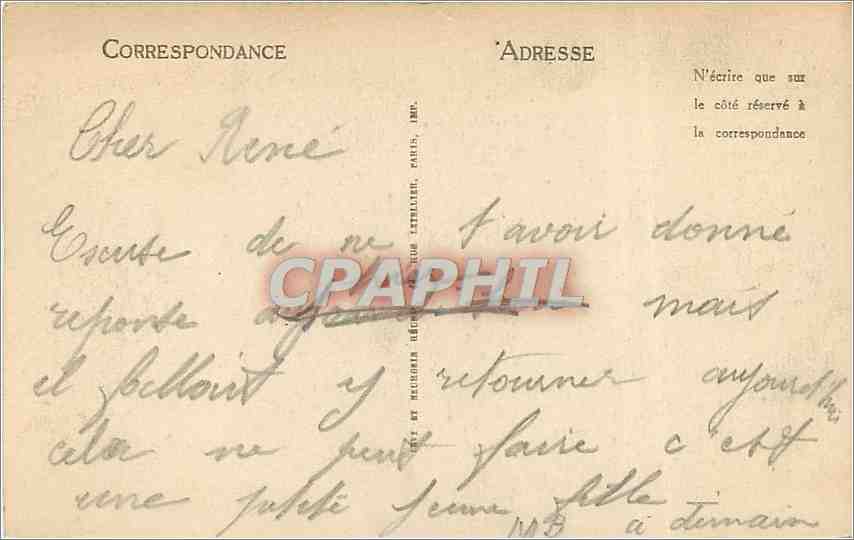 CORRESPONDANCE
ADRESSE
N'écrire que sur
le côté réservé à
la correspondance
LÉVY ET NEURDEIN RÉUNIS, RUE LETELLIER, PARIS, IMP.
CPAPHIL
Cher René
Escuse de ne t'avoir donné
reponse mais
il falloit y retourner aujourd'hui
cela ne peut faire c'est
une petite jeune fille
MB à demain